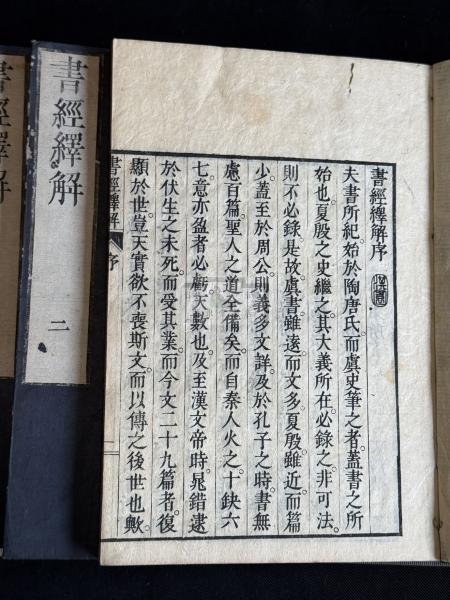 書經繹解序
夫書所紀。始於陶唐氏。而虞史筆之者。蓋書之所
始也。夏殷之史繼之。其大義所在。必錄之。非可法。
則不必錄。是故虞書雖遠。而文多。夏殷雖近。而篇
少。蓋至於周公。則義多文詳。及於孔子之時。書無
慮百篇。聖人之道全備矣。而自秦人火之。十缺六
七。意亦盈者必虧。天數也。及至漢文帝時。晁錯逮
於伏生之未死。而受其業。而今文二十九篇者。復
顯於世。豈天實欲不喪斯文。而以傳之後世也歟。
書經繹解 序
書經繹解 二
書經繹解